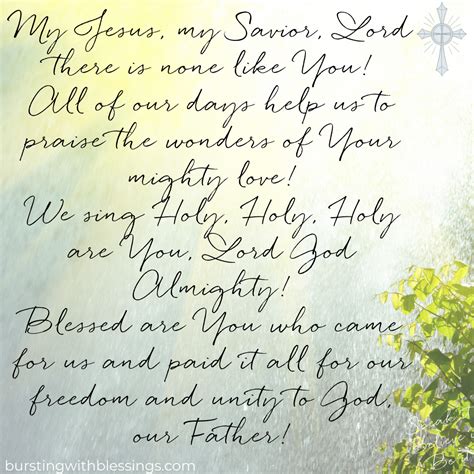 My Jesus, my Savior, Lord
there is none like You!
All of our days help us to
praise the wonders of Your
mighty love!
We sing Holy, Holy, Holy
are You, Lord God
Almighty!
Blessed are You who came
for us and paid it all for our
freedom and unity to God,
our Father!
burstingwithblessings.com